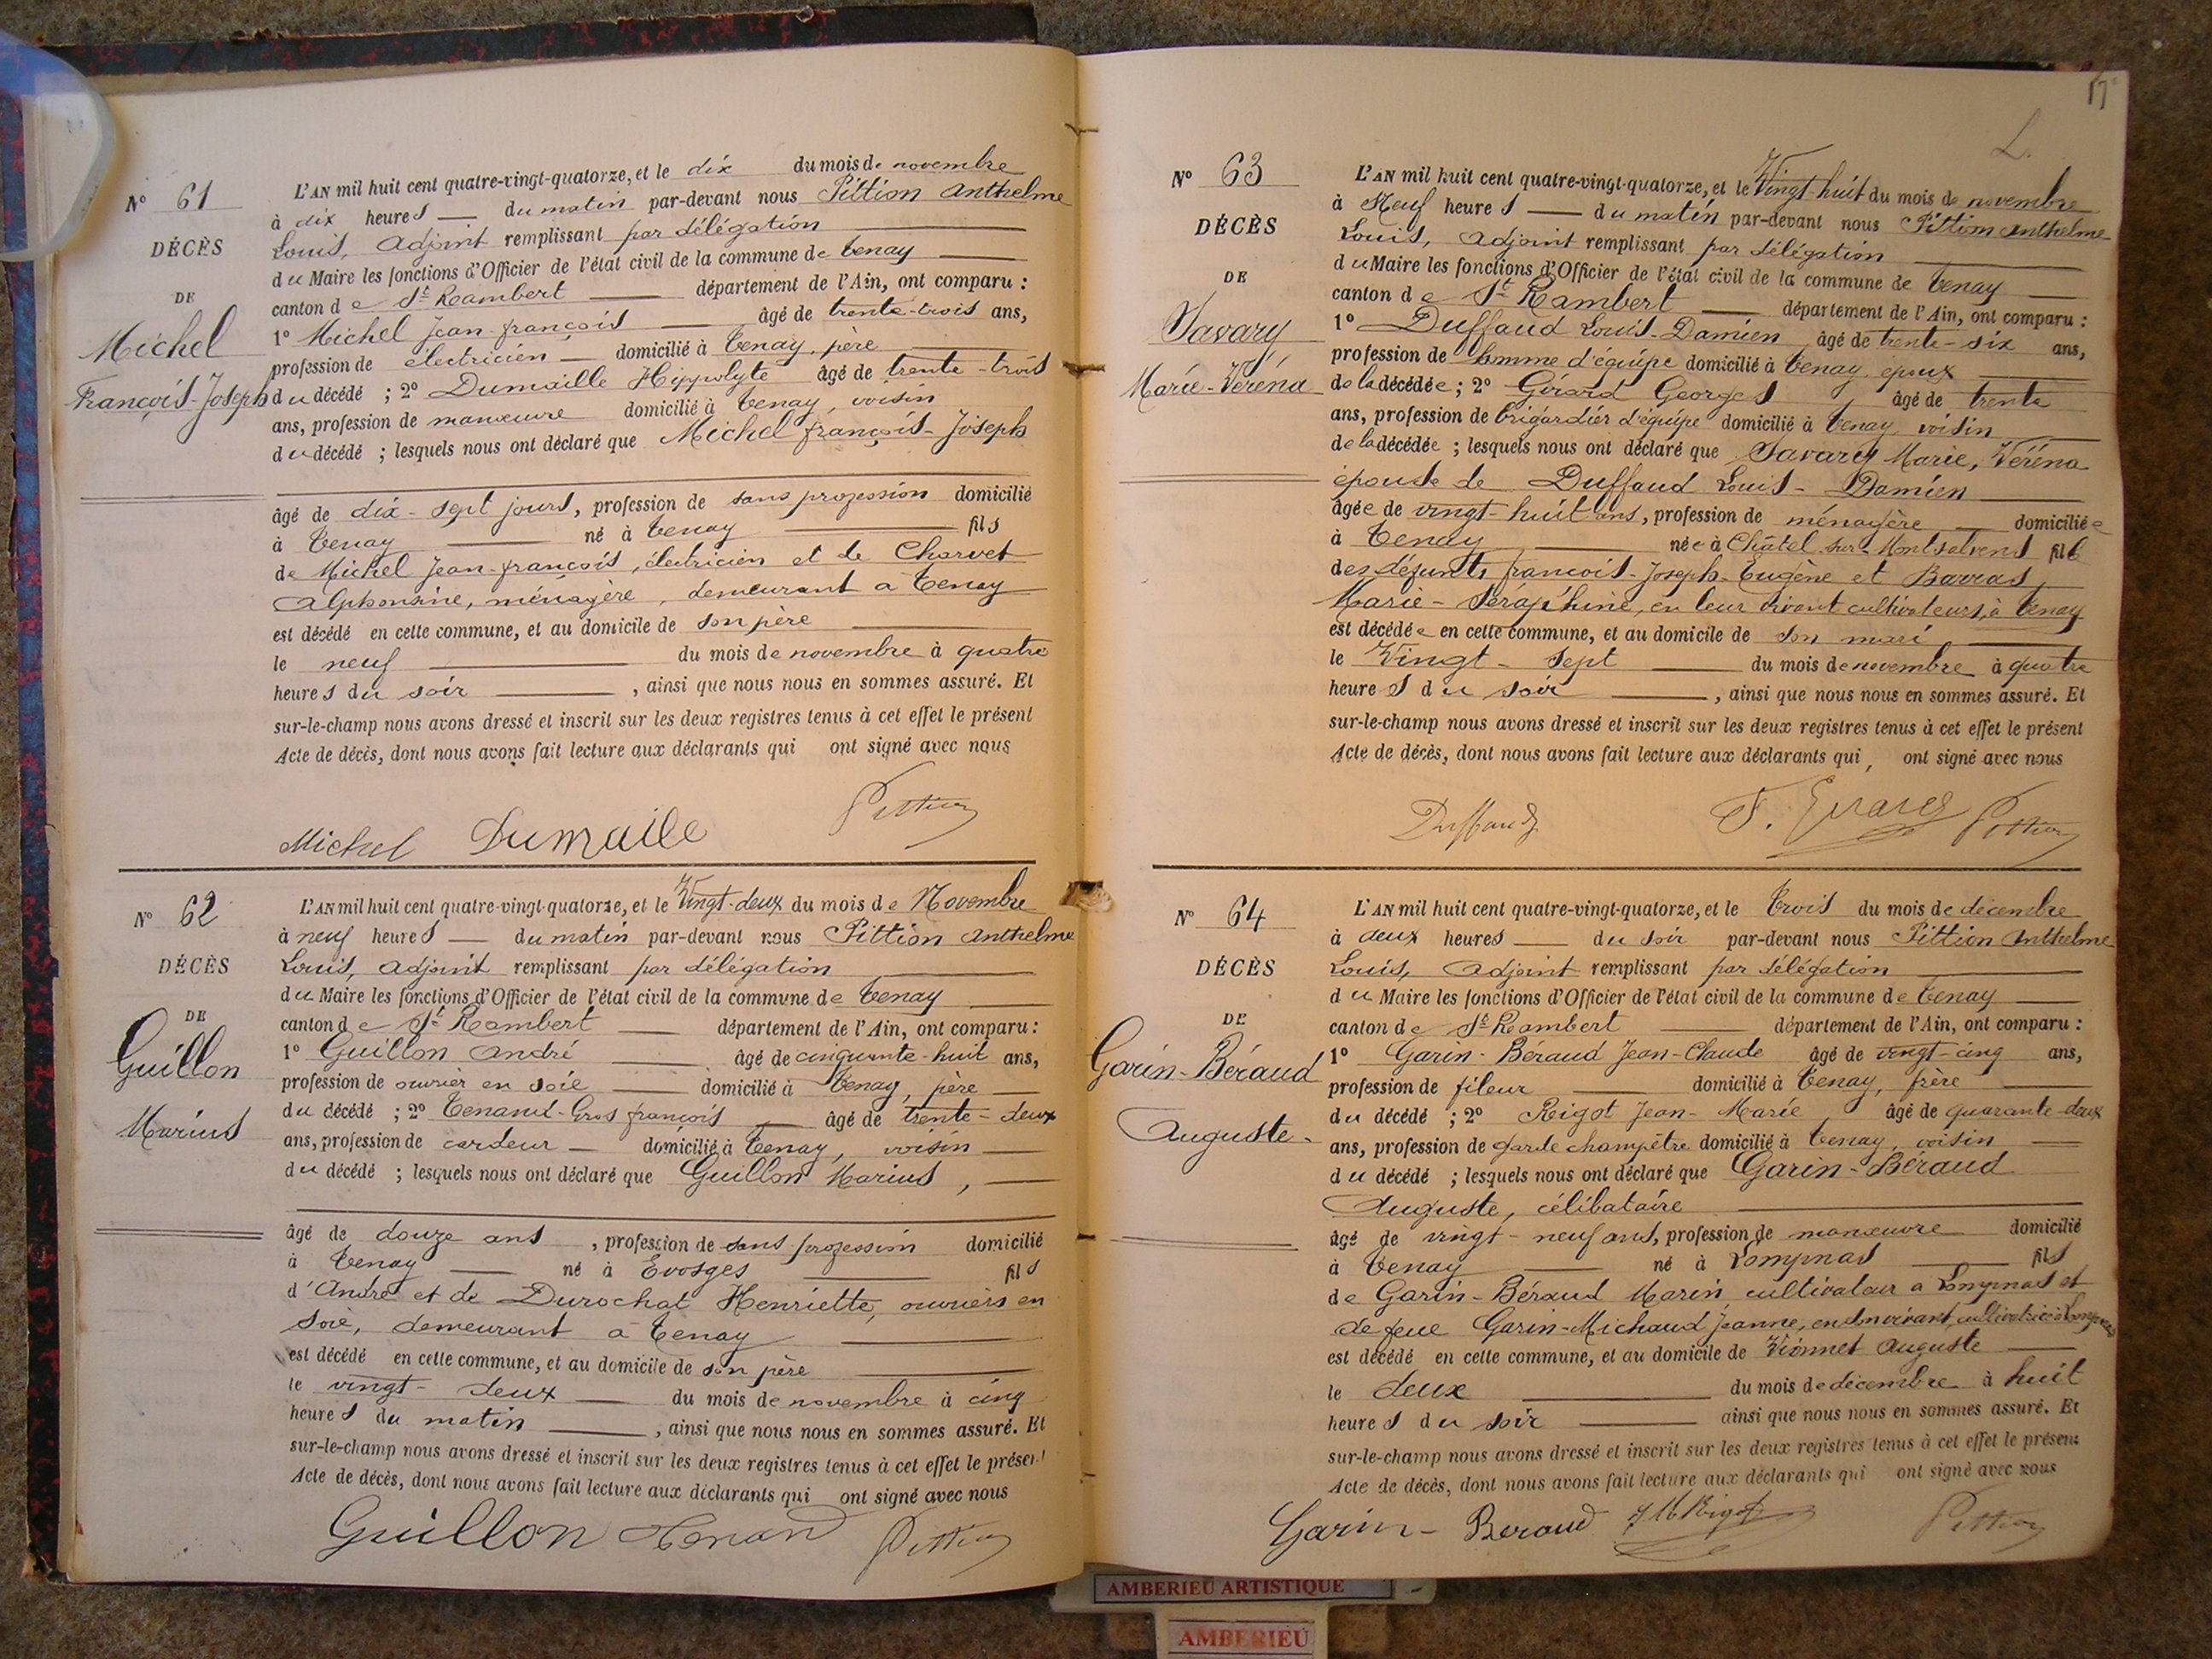 N° 61
DÉCÈS
DE
Michel
François-Joseph
L'AN mil huit cent quatre-vingt-quatorze, et le dix du mois de novembre
à dix heures du matin par-devant nous Pittion Anthelme
Louis, Adjoint remplissant par délégation
du Maire les fonctions d'Officier de l'état civil de la commune de Tenay
canton de St Rambert département de l'Ain, ont comparu :
1° Michel Jean-françois âgé de trente-trois ans,
profession de électricien domicilié à Tenay, père
du décédé ; 2° Dumaille Hippolyte âgé de trente-trois
ans, profession de manœuvre domicilié à Tenay, voisin
du décédé ; lesquels nous ont déclaré que Michel françois-Joseph
âgé de dix-sept jours, profession de sans profession domicilié
à Tenay né à Tenay fils
de Michel Jean-françois, électricien et de Charvet
Alphonsine, ménagère, demeurant à Tenay
est décédé en cette commune, et au domicile de son père
le neuf du mois de novembre à quatre
heures du soir , ainsi que nous nous en sommes assuré. Et
sur-le-champ nous avons dressé et inscrit sur les deux registres tenus à cet effet le présent
Acte de décès, dont nous avons fait lecture aux déclarants qui ont signé avec nous
Michel Dumaille Pittion
N° 62
DÉCÈS
DE
Guillon
Marius
L'AN mil huit cent quatre-vingt-quatorze, et le Vingt-deux du mois de Novembre
à neuf heures du matin par-devant nous Pittion Anthelme
Louis, Adjoint remplissant par délégation
du Maire les fonctions d'Officier de l'état civil de la commune de Tenay
canton de St Rambert département de l'Ain, ont comparu :
1° Guillon André âgé de cinquante-huit ans,
profession de ouvrier en soie domicilié à Tenay, père
du décédé ; 2° Tenand-Gros françois âgé de trente-deux
ans, profession de cardeur domicilié à Tenay, voisin
du décédé ; lesquels nous ont déclaré que Guillon Marius,
âgé de douze ans , profession de sans profession domicilié
à Tenay né à Evosges fils
d'André et de Durochat Henriette, ouvriers en
soie, demeurant à Tenay
est décédé en cette commune, et au domicile de son père
le vingt-deux du mois de novembre à cinq
heures du matin , ainsi que nous nous en sommes assuré. Et
sur-le-champ nous avons dressé et inscrit sur les deux registres tenus à cet effet le présent
Acte de décès, dont nous avons fait lecture aux déclarants qui ont signé avec nous
Guillon Tenand Pittion
17
L.
N° 63
DÉCÈS
DE
Savary
Marie-Véréna
L'AN mil huit cent quatre-vingt-quatorze, et le Vingt-huit du mois de novembre
à Neuf heures du matin par-devant nous Pittion Anthelme
Louis, Adjoint remplissant par délégation
du Maire les fonctions d'Officier de l'état civil de la commune de Tenay
canton de St Rambert département de l'Ain, ont comparu :
1° Duffaud Louis-Damien âgé de trente-six ans,
profession de homme d'équipe domicilié à Tenay, époux
de la décédée ; 2° Gérard Georges âgé de trente
ans, profession de brigardier d'équipe domicilié à Tenay, voisin
de la décédée ; lesquels nous ont déclaré que Savary Marie, Véréna
épouse de Duffaud Louis-Damien
âgée de vingt-huit ans, profession de ménagère domiciliée
à Tenay née à Châtel-sur-Montsalvens fille
des défunts françois-Joseph-Eugène et Barras,
Marie-Séraphine, en leur vivant cultivateurs, à Tenay
est décédée en cette commune, et au domicile de son mari
le Vingt-Sept du mois de novembre à quatre
heures du soir , ainsi que nous nous en sommes assuré. Et
sur-le-champ nous avons dressé et inscrit sur les deux registres tenus à cet effet le présent
Acte de décès, dont nous avons fait lecture aux déclarants qui, ont signé avec nous
Duffaud Pittion
N° 64
DÉCÈS
DE
Garin-Béraud
Auguste.
L'AN mil huit cent quatre-vingt-quatorze, et le Trois du mois de décembre
à deux heures du soir par-devant nous Pittion Anthelme
Louis, Adjoint remplissant par délégation
du Maire les fonctions d'Officier de l'état civil de la commune de Tenay
canton de St Rambert département de l'Ain, ont comparu :
1° Garin-Béraud Jean-Claude âgé de vingt-cinq ans,
profession de fileur domicilié à Tenay, frère
du décédé ; 2° Rigot Jean-Marie âgé de quarante-deux
ans, profession de garde champêtre domicilié à Tenay, voisin
du décédé ; lesquels nous ont déclaré que Garin-Béraud
Auguste, célibataire
âgé de vingt-neuf ans, profession de manœuvre domicilié
à Tenay né à Lompnas fils
de Garin-Béraud Marin, cultivateur à Lompnas et
de feue Garin-Michaud Jeanne, en son vivant, cultivatrice à Lompnas
est décédé en cette commune, et au domicile de Vionnet Auguste
le deux du mois de décembre à huit
heures du soir ainsi que nous nous en sommes assuré. Et
sur-le-champ nous avons dressé et inscrit sur les deux registres tenus à cet effet le présent
Acte de décès, dont nous avons fait lecture aux déclarants qui ont signé avec nous
Garin-Beraud JM Rigot Pittion
AMBERIEU ARTISTIQUE
AMBERIEU